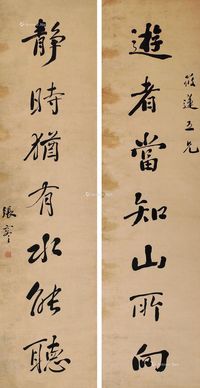 遊者當知山所向
筱蓮五兄
靜時猶有水能聽
張謇